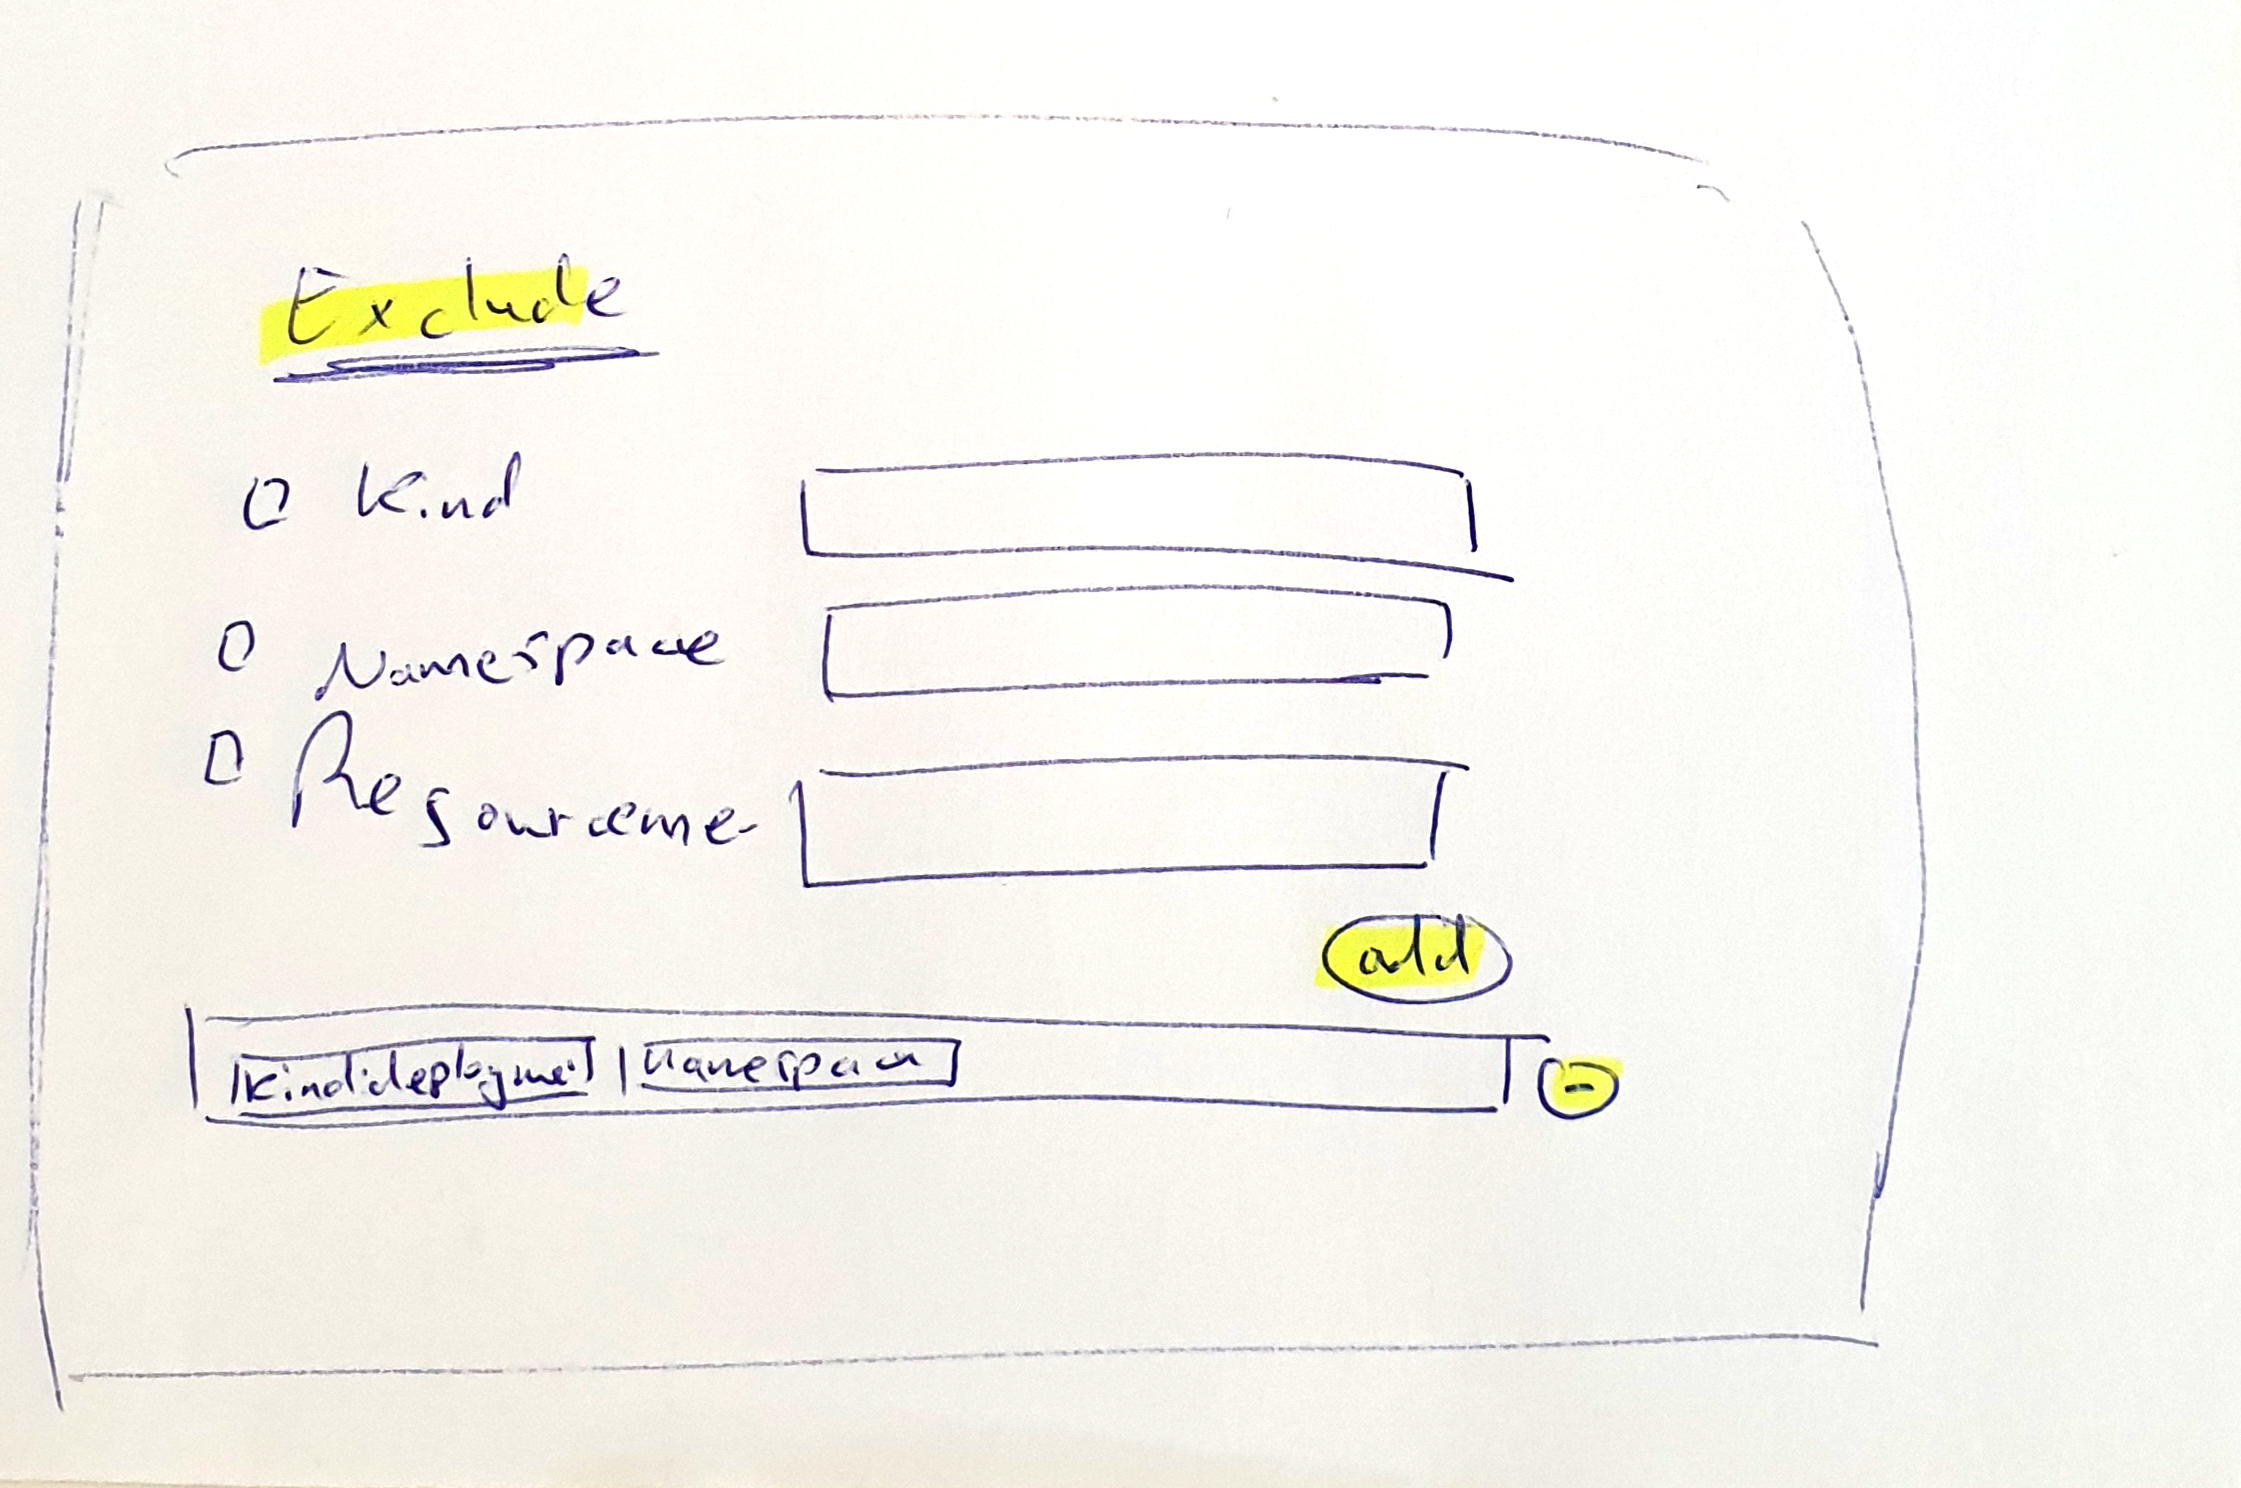 Exclude
Kind
Namespace
Resourceme
add
Kind:deployme
Namespace
-